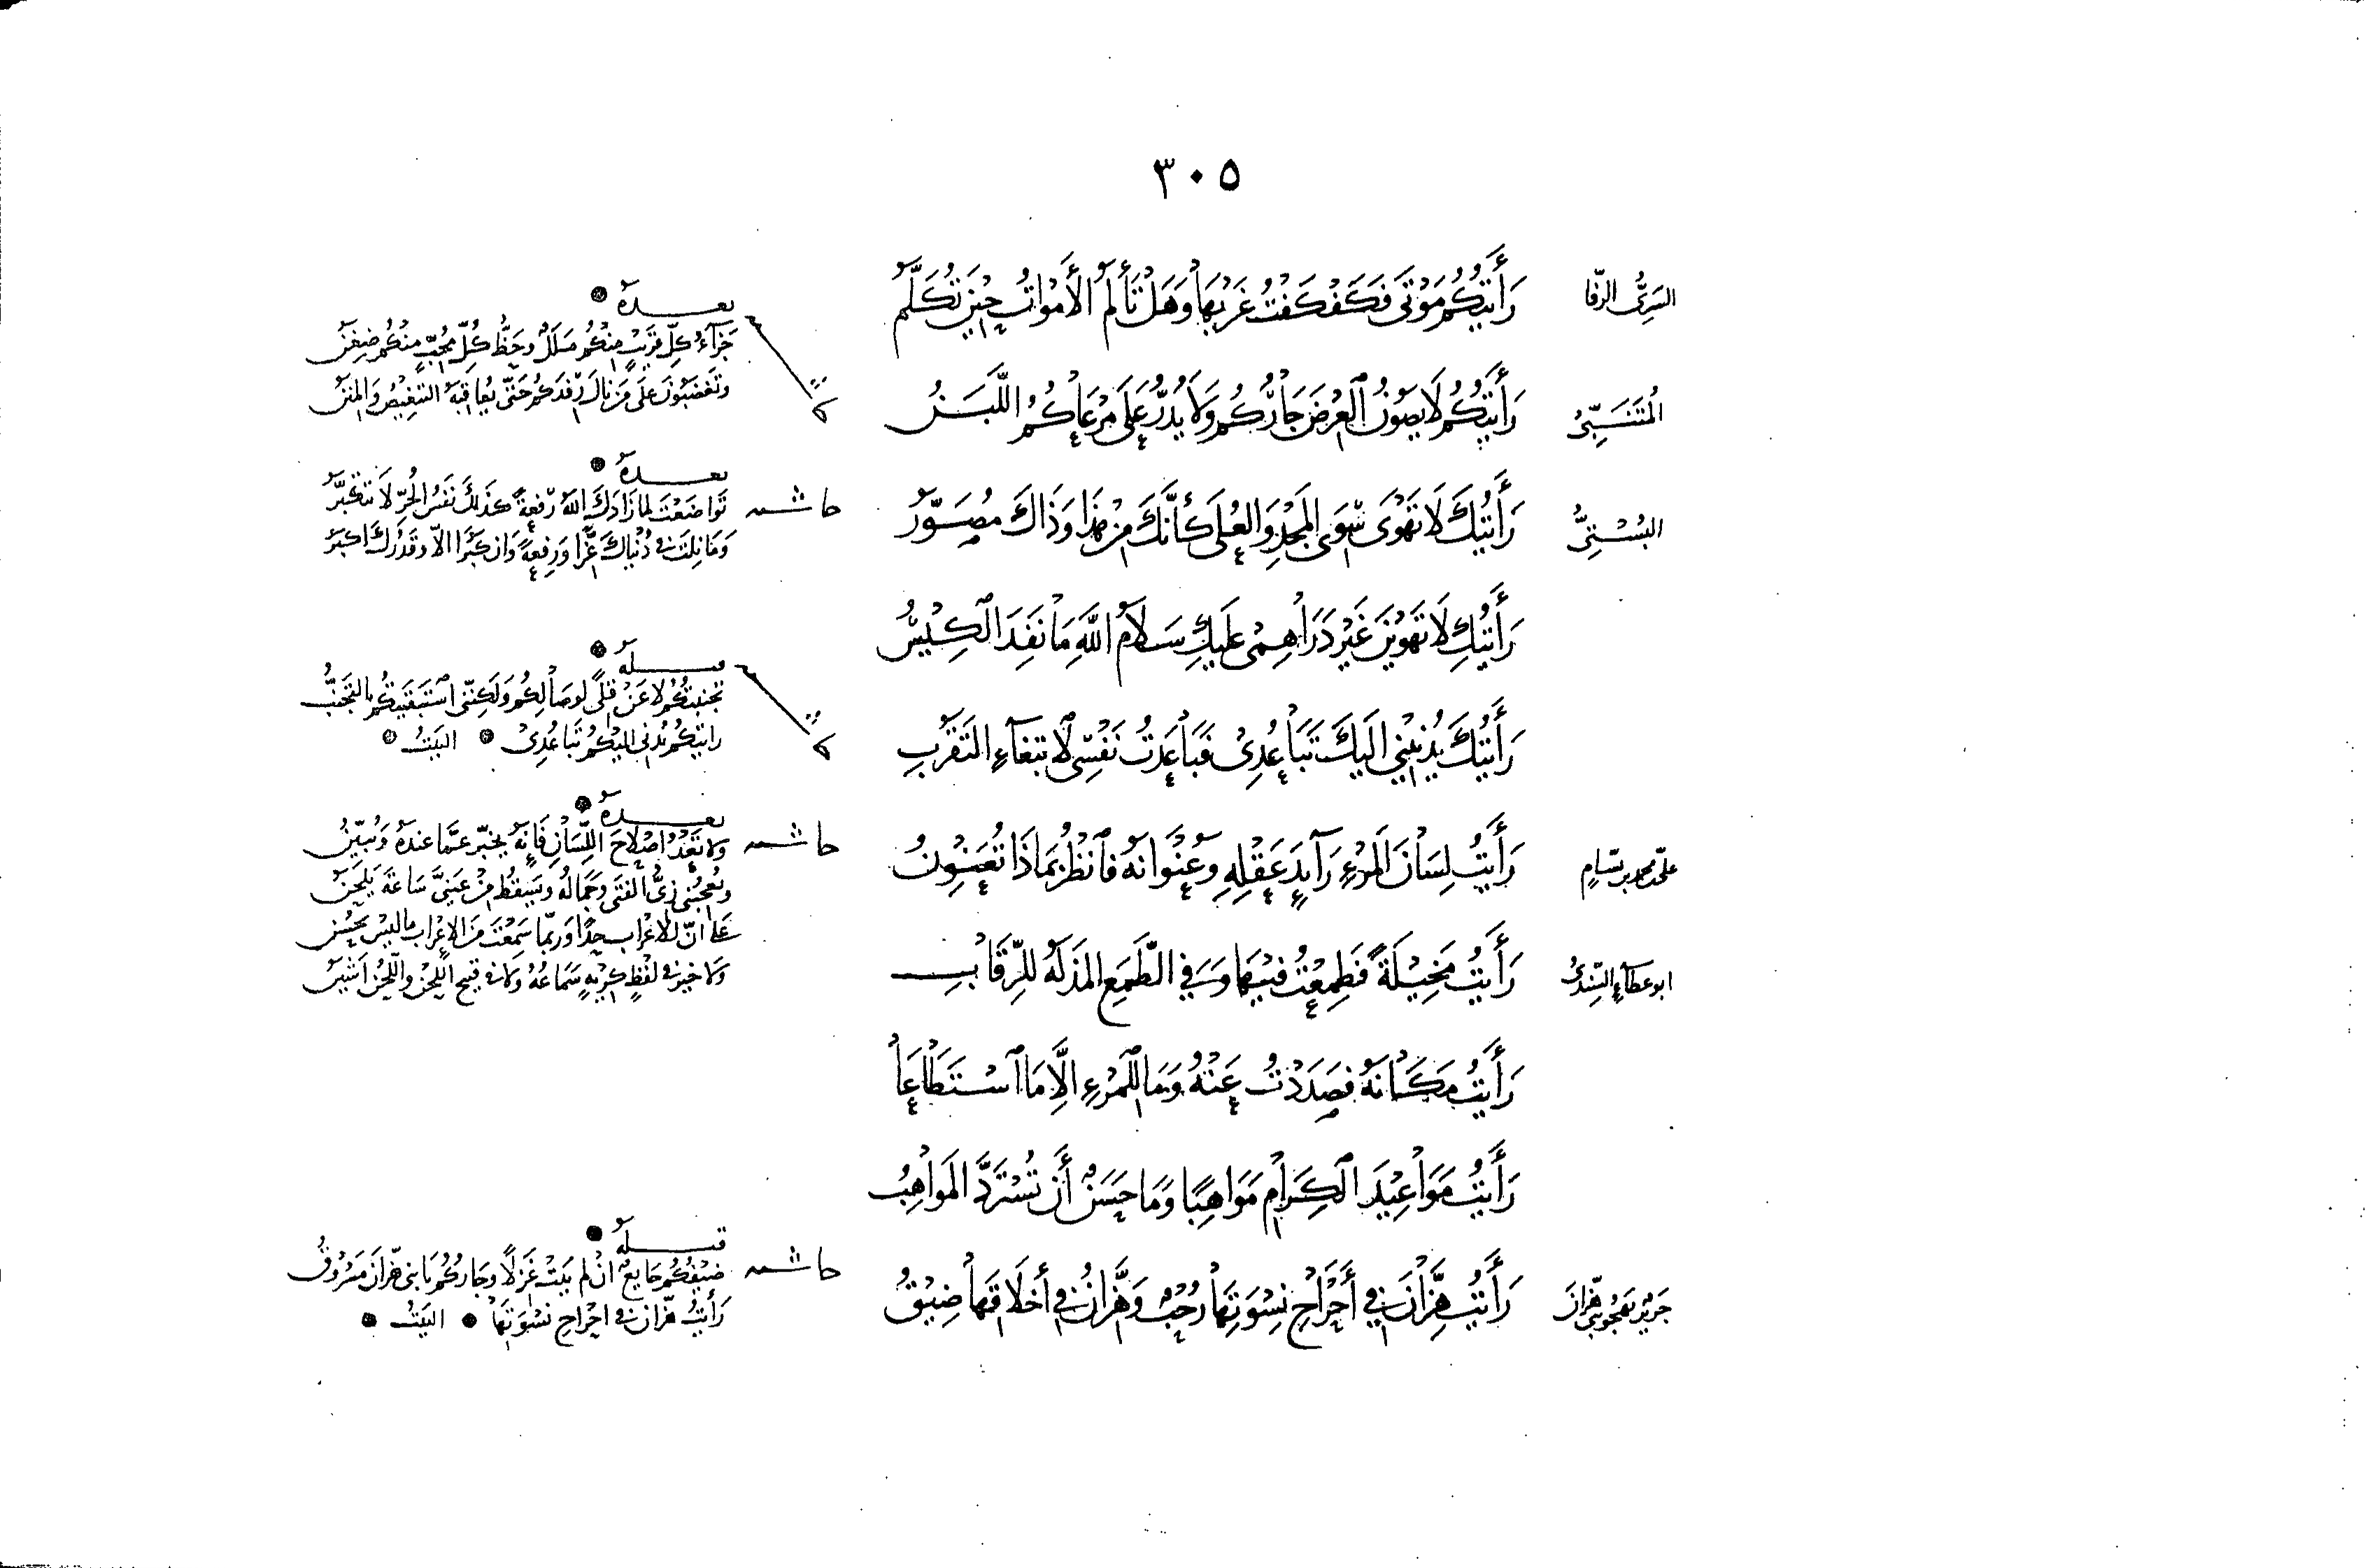 ٣٠٥
السَرِيُّ الرفّا
رَأَيتُكُمُ مَوْتَى فَكَفْكَفْتُ غَرْبَهَا وَهَلْ تَأْلَمُ الأَمْوَاتُ حِيْنَ تُكَلَّمُ
المُتَنَبِّيْ
رَأَيتُكُمُ لَا يَصُونُ العِرْضَ جَارُكُمُ وَلَا يَدُرُّ عَلَى مَرْعَاكُمُ اللَّبَنُ
بعده
جَزَآءُ كلِّ قَرِيْبٍ مِنكُمُ مَلَلٌ وحَظُّ كُلِّ مُحِبٍّ مِنْكُمُ ضَغَنُ
وتَغضَبُونَ عَلَى مَن نَالَ رِفدَكُمُ حَتَّى يُعَاقِبَهُ التَنغِيْصُ وَالمِنَنُ
البُسْتِيُّ
رَأَيتُكَ لَا تَهْوَى سِوَى المَجْدِ وَالعُلَى كَأَنَّكَ مِنْ هَذَا وَذَاكَ مُصَوَّرُ
حاشية
بعده
تَوَاضَعْتَ لمَا زَادَكَ اللَّهُ رِفعةً كذَلكَ نَفسُ الحُرِّ لَا تتكَبَّرُ
وَمَا نِلتَ فِى دُنْيَاكَ عِزًّا وَرِفعةً وَان كَبُرَا الَّا وقَدْرُكَ اكبَرُ
رَأَيتُكِ لَا تَهْوَيْنَ غَيْرَ دَرَاهِمِى عَلَيكِ سَلَامُ اللَّهِ مَا نَفِدَ الكِيْسُ
رَأَيتُكَ يُدْنِيْنِي الَيكَ تَبَاعُدِىْ فَبَاعَدتُ نَفْسِى لابتغَآءِ التَقَرُّبِ
قبله
تجنبتكُمُ لا عَنْ قِلًى لوصَالِكُم وَلَكِنّنِى استَبقَيتكُم بالتجَنُّبِ
رايتكُمُ يُدنِى اليكُم تَبَاعُدِىْ البَيتُ
علي محمد بن بسّامٍ
رَأَيتُ لِسَانَ المَرْءِ رَآيدَ عَقْلِهِ وَعُنْوَانَهُ فَانظُرْ بمَاذَا تُعَنْوِنُ
حاشية
بعده
ولا تَعْدُ اصْلَاحَ اللِّسَانِ فَإِنَّهُ يخبّر عمَّا عندهُ وَيُبيّنُ
ويُعجبُنِى زِىُّ الفتَى وجَمَالُهُ ويَسقطُ مِنْ عَينيَّ سَاعَةَ يَلحَنُ
عَلَى انَّ للاعْرَابِ حدًّا وَربّمَا سَمِعْتَ مِنَ الاعْرَابِ ما ليسَ يحسُن
وَلَا خيرَ فِى لفظٍ كريهٍ سَمَاعُهُ وَلا فِى قبيح اللحنِ واللّحنُ اَشيَنُ
ابو عطآءٍ السِّنديُّ
رَأَيتُ مَخِيْلَةً فَطَمِعْتُ فيْهَا وَفِي الطَّمَعِ المَذَلَّهُ للرِّقَابِ
رَأَيتُ مَكَانَهُ فَصَدَدْتُ عَنْهُ وَمَا لِلْمَرْءِ الَّا مَا اسْتَطَاعَا
رَأَيتُ مَوَاعِيْدَ الكِرَامِ مَوَاهِبًا وَمَا حَسَنٌ أَن تُسْتَرَدَّ المَوَاهِبُ
جَرِيْرٌ يَهجُو بَنِى هِزَّانَ
رَأَيتُ هِزَّانَ فِي أَحْرَاحِ نِسْوَتِهَا رُحْبٌ وَهِزَّانُ فِي أَخلَاقِهَا ضِيْقُ
حاشية
قبله
ضيفُكُم جَايعٌ انْ لم يَبِتْ غَزِلًا وجَاركُم يَا بنِى هِزّانَ مَسْرُوقُ
رَأَيتُ هزّانَ فِى احرَاحِ نسْوَتِهَا البَيتُ